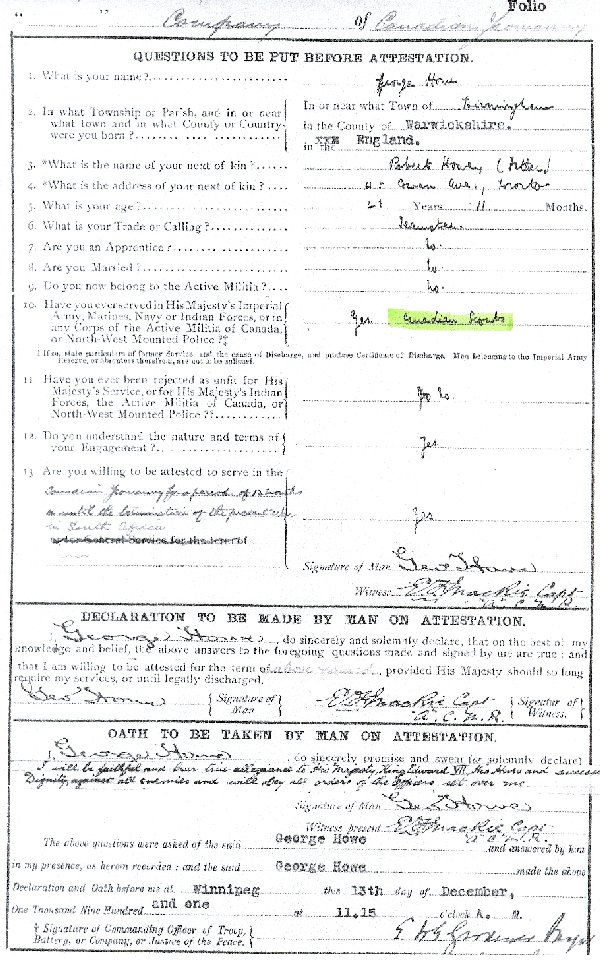 Folio
" " Company of Canadian Yeomanry
QUESTIONS TO BE PUT BEFORE ATTESTATION.
1. What is your name?
George Howe
2. In what Township or Parish, and in or near what town and in what County or Country were you born?
In or near what Town of Birmingham
in the County of Warwickshire.
in the xxx England.
3. *What is the name of your next of kin?
Robert (father)
4. *What is the address of your next of kin?
Cowan Ave.,
5. What is your age?
Years 11 Months.
6. What is your Trade or Calling?
Teamster
7. Are you an Apprentice?
No.
8. Are you Married?
No.
9. Do you now belong to the Active Militia?
No.
10. Have you ever served in His Majesty's Imperial
Army, Marines, Navy or Indian Forces, or in
any Corps of the Active Militia of Canada,
or North-West Mounted Police?‡
Yes Canadian Scouts
‡ If so, state particulars of former Service, and the cause of Discharge, and produce Certificate of Discharge. Men belonging to the Imperial Army
Reserve, or liberators therefrom, are not to be enlisted.
11. Have you ever been rejected as unfit for His
Majesty's Service, or for His Majesty's Indian
Forces, the Active Militia of Canada, or
North-West Mounted Police?
No
12. Do you understand the nature and terms of
your Engagement?
Yes
13. Are you willing to be attested to serve in the
Canadian Yeomanry for a period of 12 months
or until the termination of the present war
in South Africa
Yes
under General Service for the term of
Signature of Man Geo Howe
Witness E F Mackie Capt
A. C. M. R.
DECLARATION TO BE MADE BY MAN ON ATTESTATION.
I, George Howe, do sincerely and solemnly declare, that on the best of my
knowledge and belief, the above answers to the foregoing questions made and signed by me are true; and
that I am willing to be attested for the term of above named, provided His Majesty should so long
require my services, or until legally discharged.
Geo Howe Signature of Man E F Mackie Capt A. C. M. R. Signatur of Witness.
OATH TO BE TAKEN BY MAN ON ATTESTATION.
I, George Howe, do sincerely promise and swear (or solemnly declare)
I will be faithful and bear true allegiance to His Majesty, King Edward VII His Heirs and
Dignity, against all enemies and will obey all orders of the Officers set over me
Signature of Man Geo Howe
Witness present E F Mackie Capt
A. C. M. R.
The above questions were asked of the said George Howe and answered by him
in my presence, as herein recorded; and the said George Howe made the above
Declaration and Oath before me at Winnipeg this 13th day of December,
One Thousand Nine Hundred and one at 11.15 o'clock A. M.
† Signature of Commanding Officer of Troop,
Battery, or Company, or Justice of the Peace.
Major